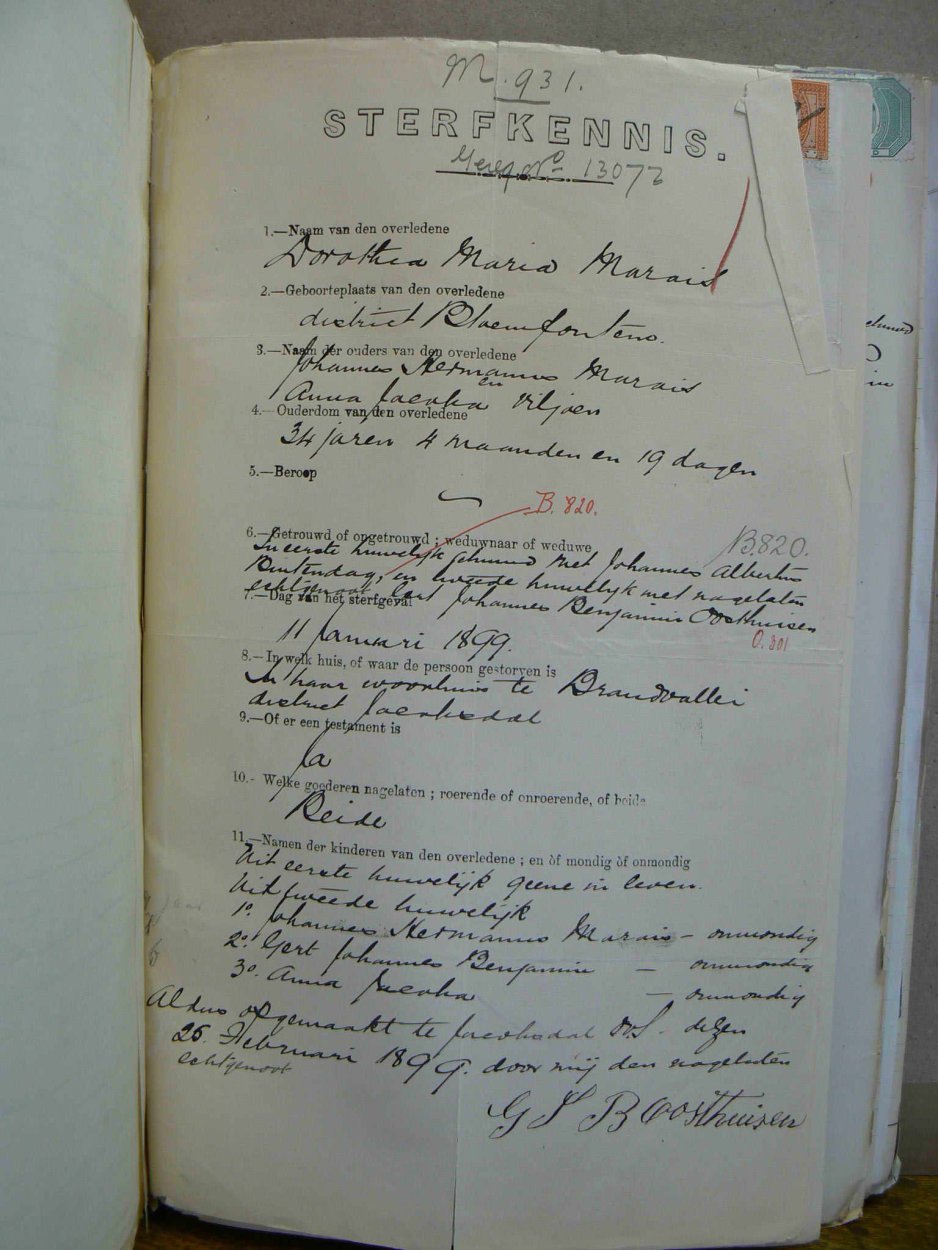 M. 931.
STERFKENNIS.
Gereg No 13073
1.—Naam van den overledene
Dorothea Maria Marais
2.—Geboorteplaats van den overledene
district Bloemfontein.
3.—Naam der ouders van den overledene
Johannes Hermanus Marais
en
Anna Jacoba Viljoen
4.—Ouderdom van den overledene
34 jaren 4 maanden en 19 dagen
5.—Beroep
B. 820.
6.—Getrouwd of ongetrouwd; weduwnaar of weduwe
B.820.
In eerste huwelijk gehuwd met Johannes Albertus
Buitendag, en tweede huwelijk met nagelaten
echtgenoot Gert Johannes Benjamin Oosthuisen
7.—Dag van het sterfgeval
O. 801
11 Januari 1899.
8.—In welk huis, of waar de persoon gestorven is
In haar woonhuis te Brandvallei
district Jacobsdal
9.—Of er een testament is
Ja
10.- Welke goederen nagelaten; roerende of onroerende, of beide
Beide
11.—Namen der kinderen van den overledene; en òf mondig òf onmondig
Uit eerste huwelijk geene in leven.
Uit tweede huwelijk
1o. Johannes Hermanus Marais – onmondig
2o. Gert Johannes Benjamin — onmondig
3o. Anna Jacoba — onmondig
Aldus opgemaakt te Jacobsdal OVS. dezen
25. Februari 1899. door mij den nagelaten
echtgenoot
G J B Oosthuisen